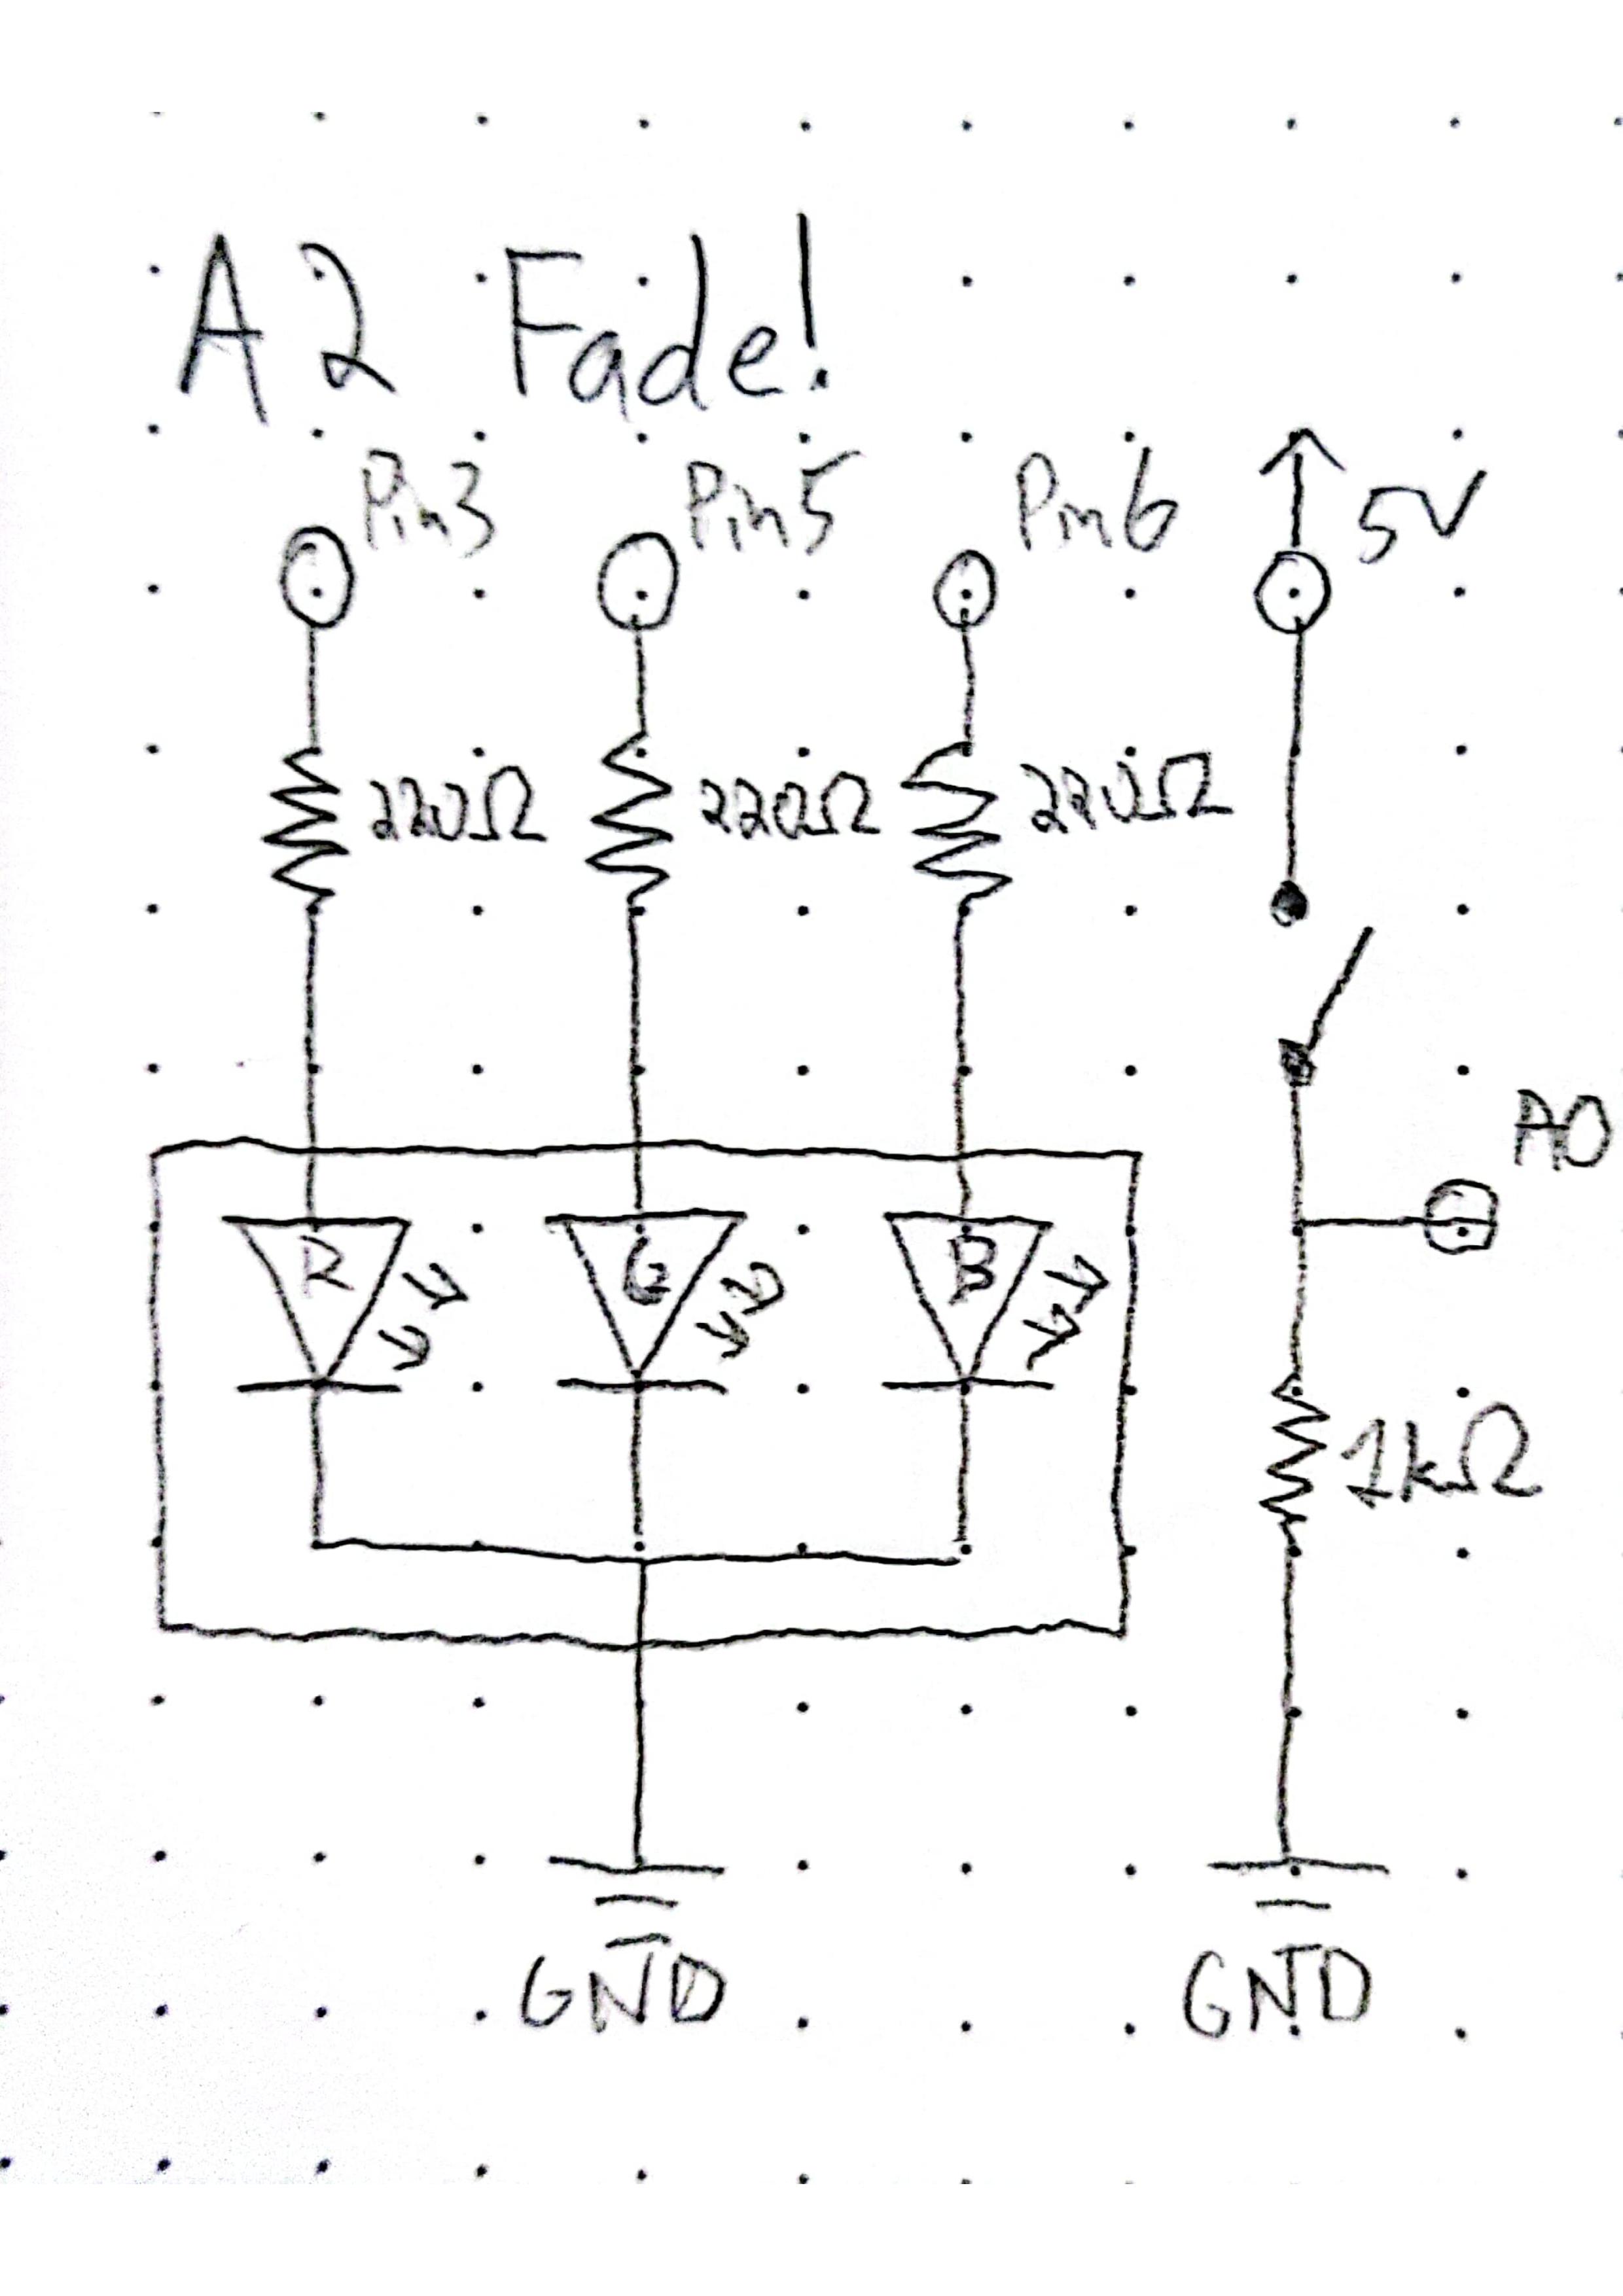 A2 Fade!
Pin3 Pin5 Pin6 5V
220Ω 220Ω 220Ω
A0
R G B
1kΩ
GND GND